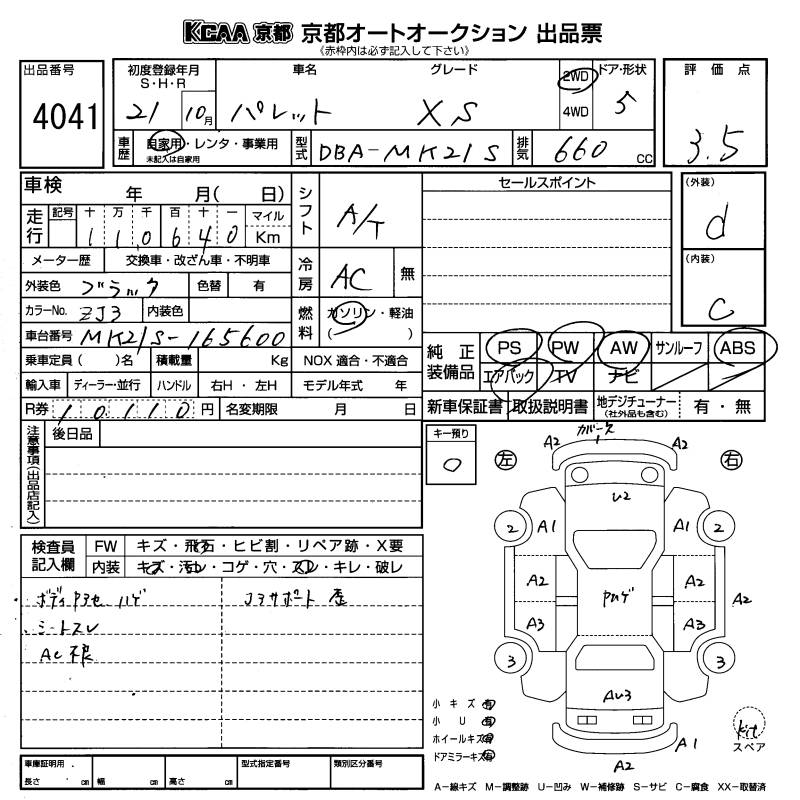 KCAA 京都 京都オートオークション 出品票
《赤枠内は必ず記入して下さい》
出品番号
4041
初度登録年月
S・H・R
21 10月
車名
パレット
グレード
XS
2WD
4WD
ドア・形状
5
評価点
3.5
車歴
自家用・レンタ・事業用
未記入は自家用
型式
DBA-MK21S
排気
660 CC
車検 年 月( 日)
走行
記号 十 万 千 百 十 一 マイル
1 1 0 6 4 0 Km
シフト
A/T
セールスポイント
(外装)
d
メーター歴 交換車・改ざん車・不明車
外装色 ブラック 色替 有
冷房
AC 無
(内装)
C
カラーNo. ZJ3 内装色
燃料
ガソリン・軽油
( )
車台番号 MK21S-165600
乗車定員( )名 積載量 Kg NOX 適合・不適合
純正装備品
PS PW AW サンルーフ ABS
エアバック TV ナビ
輸入車 ディーラー・並行 ハンドル 右H・左H モデル年式 年
R券 10110 円 名変期限 月 日
新車保証書 取扱説明書 地デジチューナー
(社外品も含む)
有・無
注意事項(出品店記入)
後日品
キー預り
0
左
右
A2
A2
U2
2 A1 A1 2
A2 A2 A2
A3 A3
3 3
AU3
A1
A2
検査員記入欄
FW キズ・飛石・ヒビ割・リペア跡・X要
内装 キズ・汚レ・コゲ・穴・スレ・キレ・破レ
シートスレ
AC不良
小キズ 有
小U 有
ホイールキズ 有
ドアミラーキズ 有
kit
スペア
車庫証明用
長さ cm 幅 cm 高さ cm
型式指定番号
類別区分番号
A-線キズ M-調整跡 U-凹み W-補修跡 S-サビ C-腐食 XX-取替済